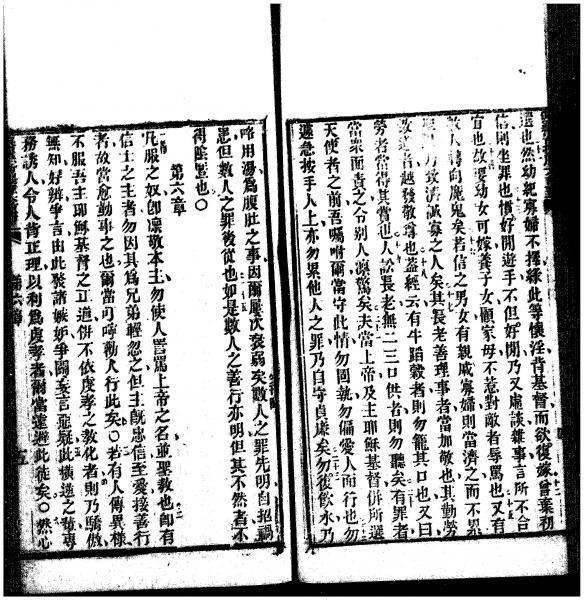 還也然幼紀寡婦不擇緣此等懷淫背基督而欲復嫁曾棄初
信則坐罪也慣好閒遊手不但好閒乃又虛談雜事言所不合
宜也故深幼女可嫁養子女顧家毋不惹對敵者辱罵也又有
數人轉向魔鬼矣若信之男女有親戚寡婦則當濟之而不累
致濟誠寡之人矣其長老善理事者當加敬也其勤勞
教道者越發敬尊也蓋經云有牛踏穀者則勿籠其口也又曰
勞者當得其賞也人訟長老無二三口供者則勿聽矣有罪者
當衆而責之令別人懍驚矣夫當上帝及主耶穌基督併所選
天使者之前吾囑咐爾當守此情勿固執勿偏愛人而行也勿
遽急按手人上亦勿累他人之罪乃自守貞廉矣勿復飲水乃
略用湯爲腹肚之事因爾屢次衰弱矣數人之罪先明自招禍
患但數人之罪後從也如是數人之善行亦明但其不然者不
得陰匿也〇
第六章
凡服之奴卽懍敬本主勿使人詈罵上帝之名並聖教也卽有
信士之主者勿因其爲兄弟輕忽之但主旣忠信至愛接善行
者故當愈勤事之也爾當可呼勸人行此矣〇若有人傳異樣
不服吾主耶穌基督之正道併不依虔孝之教化者則乃驕傲
無知好辨爭言由此發諸嫉妒爭鬪妄言惡疑此橫逆之輩專
務誘人令人背正理以利爲虔孝者爾當遠避此徒矣〇然心